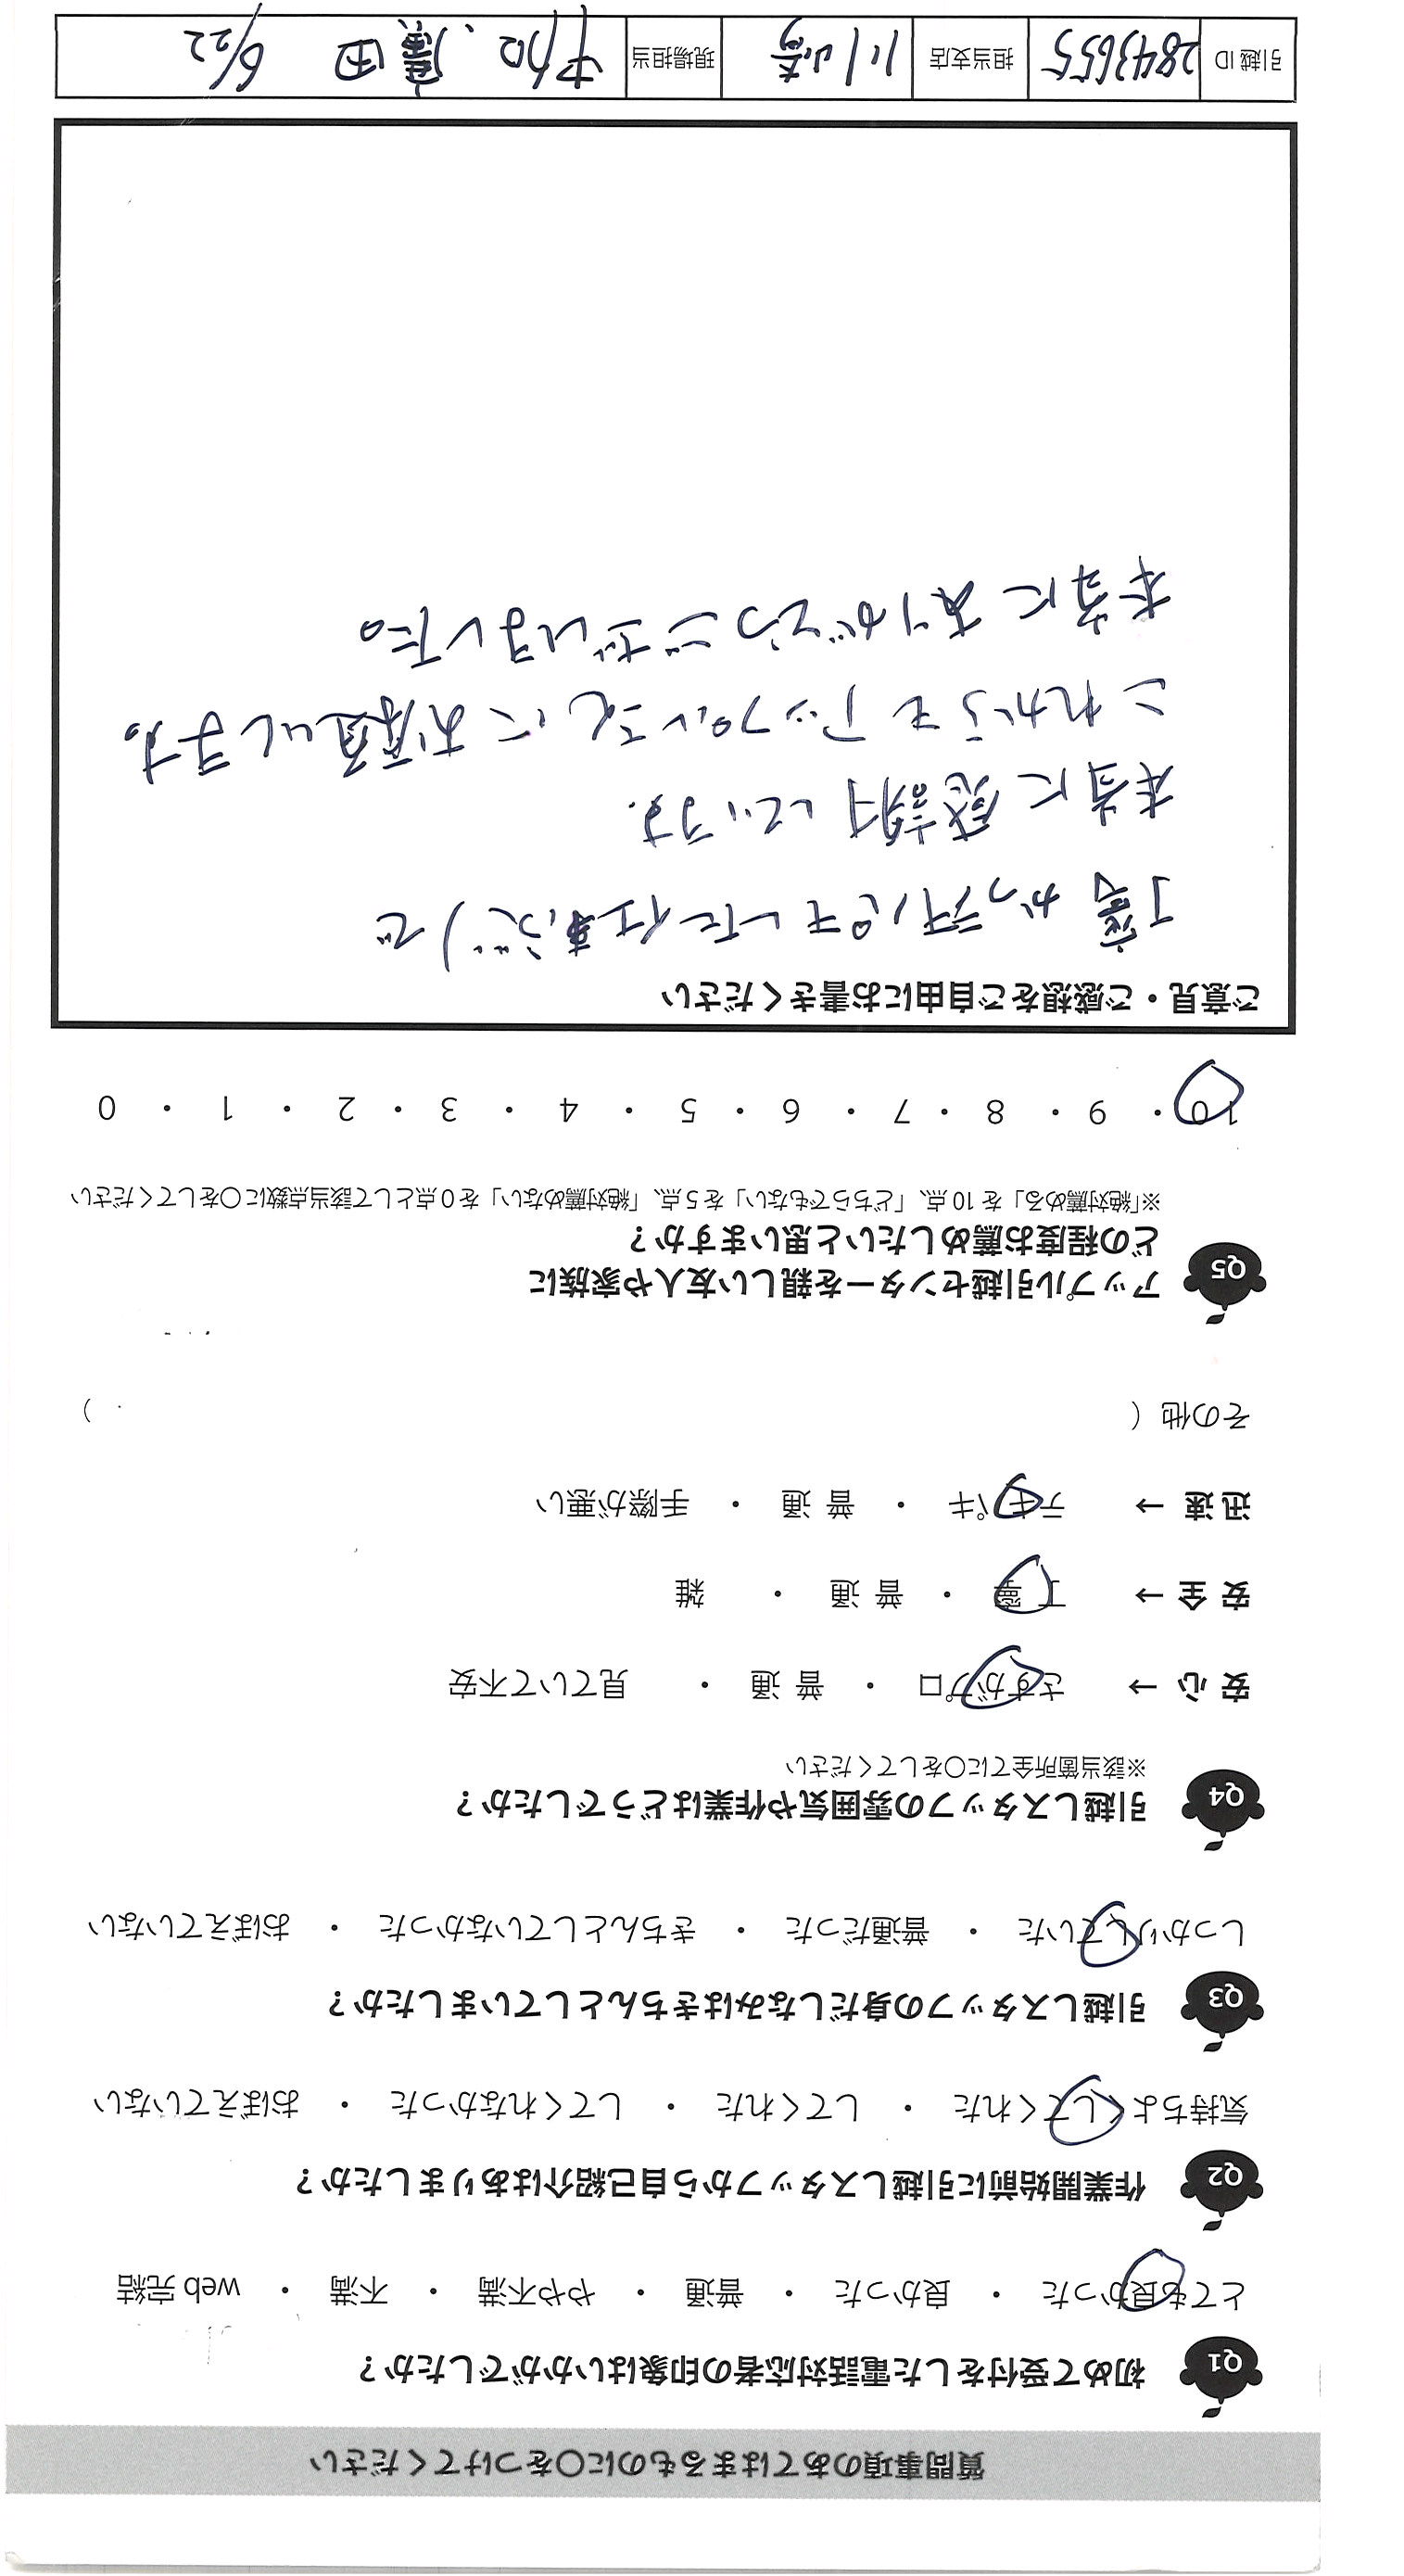 質問事項のあてはまるものに○をつけてください
Q1 初めて受付をした電話対応者の印象はいかがでしたか？
とても良かった ・ 良かった ・ 普通 ・ やや不満 ・ 不満 ・ web 完結
Q2 作業開始前に引越しスタッフから自己紹介はありましたか？
気持ちよくしてくれた ・ してくれた ・ してくれなかった ・ おぼえていない
Q3 引越しスタッフの身だしなみはきちんとしていましたか？
しっかりしていた ・ 普通だった ・ きちんとしていなかった ・ おぼえていない
Q4 引越しスタッフの雰囲気や作業はどうでしたか？
※該当箇所全てに○をしてください
安 心 → さすがプロ ・ 普 通 ・ 見ていて不安
安 全 → 丁 寧 ・ 普 通 ・ 雑
迅 速 → テキパキ ・ 普 通 ・ 手際が悪い
その他 （ ）
Q5 アップル引越センターを親しい友人や家族に
どの程度お薦めしたいと思いますか？
※「絶対薦める」を 10 点、「どちらでもない」を 5 点、「絶対薦めない」を 0 点として該当点数に○をしてください
10 ・ 9 ・ 8 ・ 7 ・ 6 ・ 5 ・ 4 ・ 3 ・ 2 ・ 1 ・ 0
ご意見・ご感想をご自由にお書きください
丁寧かつテパキした仕事ぶりで
本当に感謝しています.
これからもアップルさんにお願いします。
本当にありがとうございました。
引越 ID 2843655 担当支店 川崎 現場担当 廣田 6/22